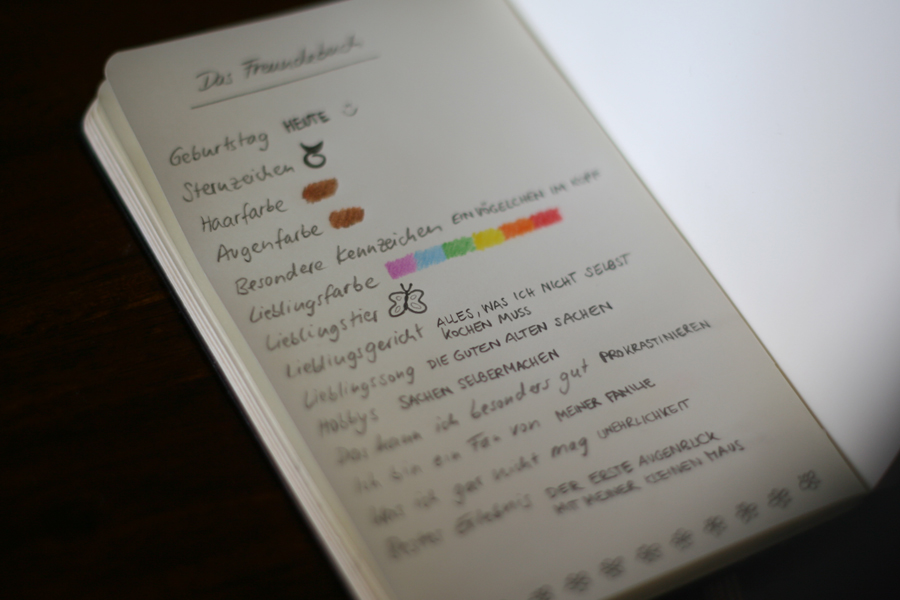 Das Freundebuch
Geburtstag HEUTE
Sternzeichen
Haarfarbe
Augenfarbe
Besondere Kennzeichen EIN VÖGELCHEN IM KOPF
Lieblingsfarbe
Lieblingstier
Lieblingsgericht ALLES, WAS ICH NICHT SELBST
KOCHEN MUSS
Lieblingssong DIE GUTEN ALTEN SACHEN
Hobbys SACHEN SELBERMACHEN
Das kann ich besonders gut PROKRASTINIEREN
Ich bin ein Fan von MEINER FAMILIE
Was ich gar nicht mag UNEHRLICHKEIT
Bestes Erlebnis DER ERSTE AUGENBLICK
MIT MEINER KLEINEN MAUS